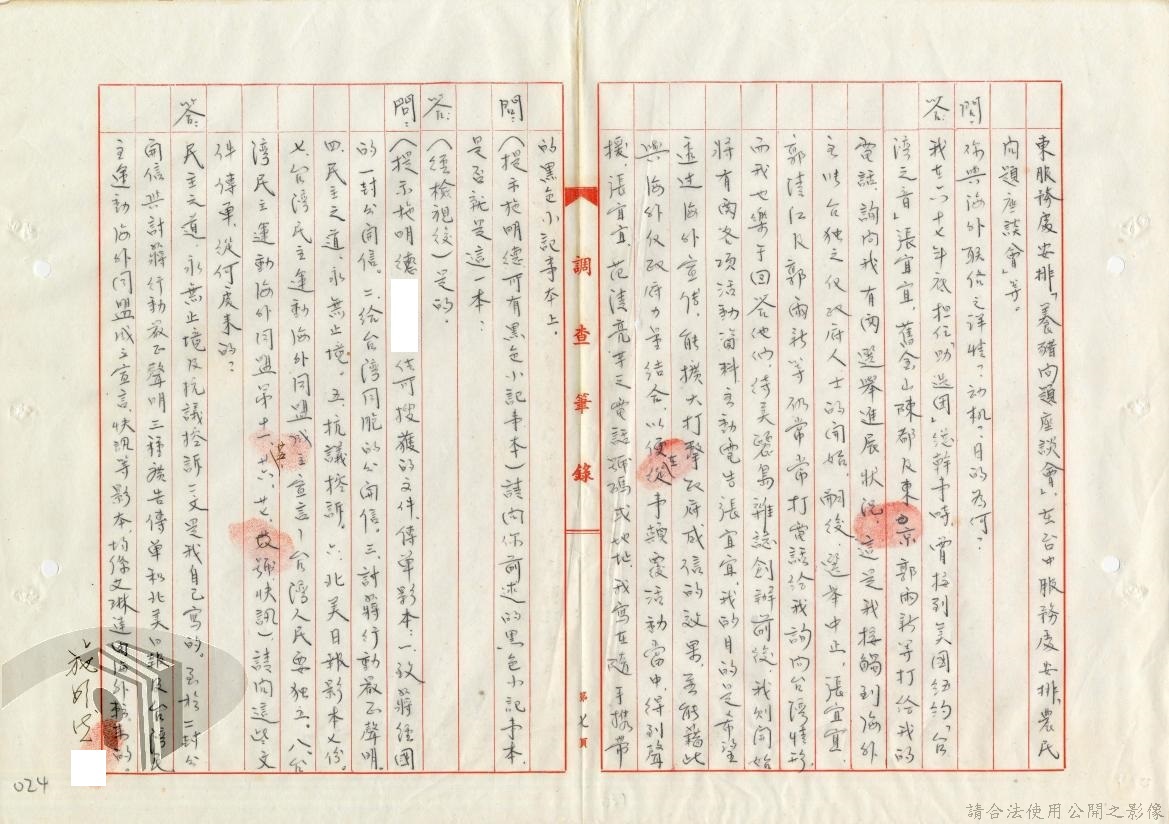 東服務處安排「養豬問題座談會」，在台中服務處安排「農民
問題座談會」等。
問：你與海外聯絡之詳情？動机？目的為何？
答：我在六十七年底担任「助選團」總幹事時，曾接到美国紐約「台
湾之音」張宜宜，舊金山陳都及東京郭雨新等打給我的
電話詢问我有関選舉進展狀況，這是我接觸到海外
主
張台独之反政府人士的開始，嗣後，選举中止，張宜宜
郭清江及郭雨新等仍常常打電話給我詢问台湾情形，
而我也樂于回答他们，待美麗島雜誌創辦前後，我則開始
將有関各項活動資料主動電告張宜宜，我的目的是希望
透过海外宣傳，能擴大打擊政府威信的效果，並能藉此
與海外反政府力量結合，以便在從事顛覆活動當中，得到聲
援，張宜宜、范清亮等之電話號碼或地址，我寫在隨手携帶
的黑色小記事本上。
問：（提示施明德所有黑色小記事本）請问你前述的黑色小記事本
是否就是這一本？
答：（經檢視後）是的。
問：（提示施明德 住所搜獲的文件、傳单影本：一、致蔣經國
的一封公開信。二、給台湾同胞的公開信。三、討蔣行動嚴正聲明。
四、民主之道，永無止境。五、抗議控訴。六、北美日報影本乂份。
七、台湾民主運動海外同盟成立宣言－台湾人民要独立。八、台
湾民主運動海外同盟第十一、廿六、廿七號快訊），請问這些文
件傳单，從何處來的？
答：民主之道，永無止境及抗議控訴二文是我自己寫的。至於二封公
開信與討蔣行動嚴正聲明三種廣告傳单和北美日報及台湾民
主運動海外同盟成立宣言、快訊等影本，均係艾琳達由海外携來的。
施明德
調查筆錄
第七頁
024
請合法使用公開之影像